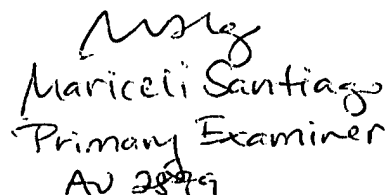 Mariceli Santiago
Primary Examiner
AU